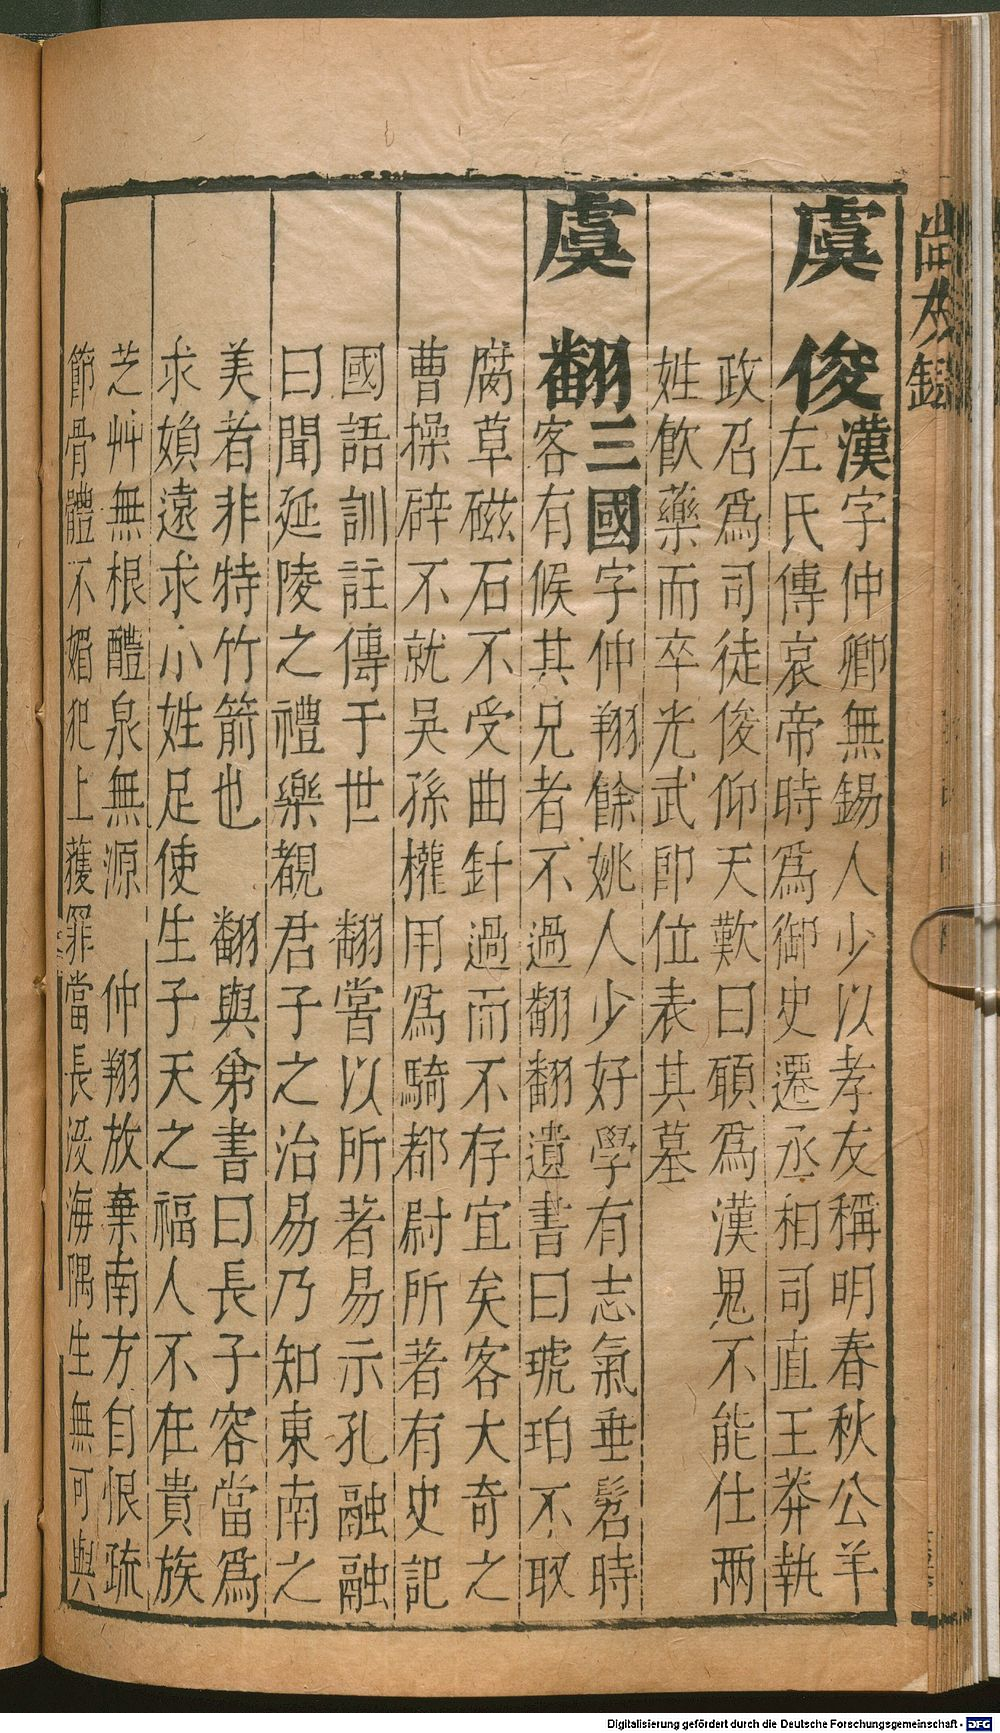 虞俊漢字仲卿無錫人少以孝友稱明春秋公羊
左氏傳哀帝時爲御史遷丞相司直王莽執
政召爲司徒俊仰天歎曰願爲漢鬼不能仕兩
姓飲藥而卒光武即位表其墓
虞翻三國字仲翔餘姚人少好學有志氣垂髫時
客有候其兄者不過翻翻遺書曰琥珀不取
腐草磁石不受曲針過而不存宜矣客大奇之
曹操辟不就吳孫權用爲騎都尉所著有史記
國語訓註傳于世 翻嘗以所著易示孔融融
曰聞延陵之禮樂覩君子之治易乃知東南之
美者非特竹箭也 翻與弟書曰長子容當爲
求婦遠求小姓足使生子天之福人不在貴族
芝艸無根醴泉無源 仲翔放棄南方自恨疏
節骨體不媚犯上獲罪當長沒海隅生無可與
尚友錄
Digitalisierung gefördert durch die Deutsche Forschungsgemeinschaft - DFG